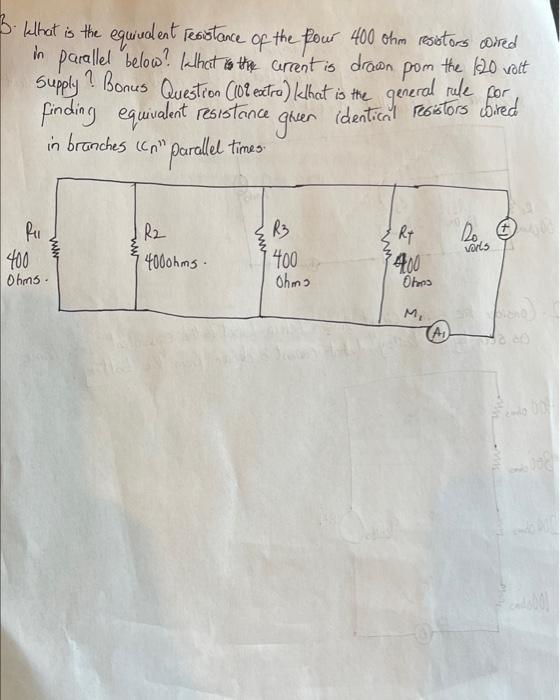 3. What is the equivalent resistance of the four 400 ohm resistors wired
in parallel below? What is the current is drawn from the 120 volt
supply? Bonus Question (10% extra) What is the general rule for
finding equivalent resistance given identical resistors wired
in branches "n" parallel times.
R11
400
Ohms.
R2
400ohms.
R3
400
Ohms
R4
400
Ohms
120
volts
+
M1
A1